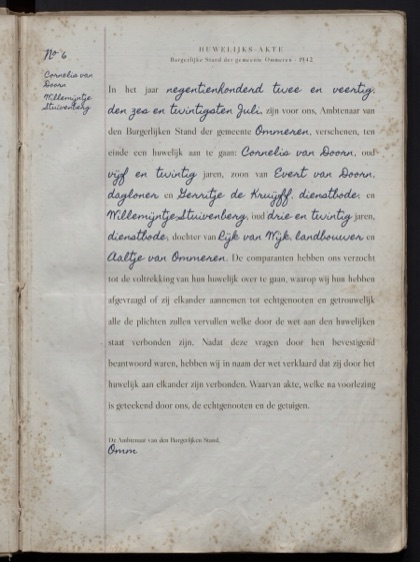 No 6
Cornelis van
Doorn
Willemijntje
Stuivenberg
HUWELIJKS AKTE
Burgerlijke Stand der gemeente Ommeren · 1942
In het jaar negentienhonderd twee en veertig,
den zes en twintigsten Juli, zijn voor ons, Ambtenaar van
den Burgerlijken Stand der gemeente Ommeren, verschenen, ten
einde een huwelijk aan te gaan: Cornelis van Doorn, oud
vijf en twintig jaren, zoon van Evert van Doorn,
dagloner en Gerritje de Kruijff, dienstbode, en
Willemijntje Stuivenberg, oud drie en twintig jaren,
dienstbode, dochter van Rijk van Wijk, landbouwer en
Aaltje van Ommeren. De comparanten hebben ons verzocht
tot de voltrekking van hun huwelijk over te gaan, waarop wij hun hebben
afgevraagd of zij elkander aannemen tot echtgenooten en getrouwelijk
alle de plichten zullen vervullen welke door de wet aan den huwelijken
staat verbonden zijn. Nadat deze vragen door hen bevestigend
beantwoord waren, hebben wij in naam der wet verklaard dat zij door het
huwelijk aan elkander zijn verbonden. Waarvan akte, welke na voorlezing
is geteekend door ons, de echtgenooten en de getuigen.
De Ambtenaar van den Burgerlijken Stand,
Omm